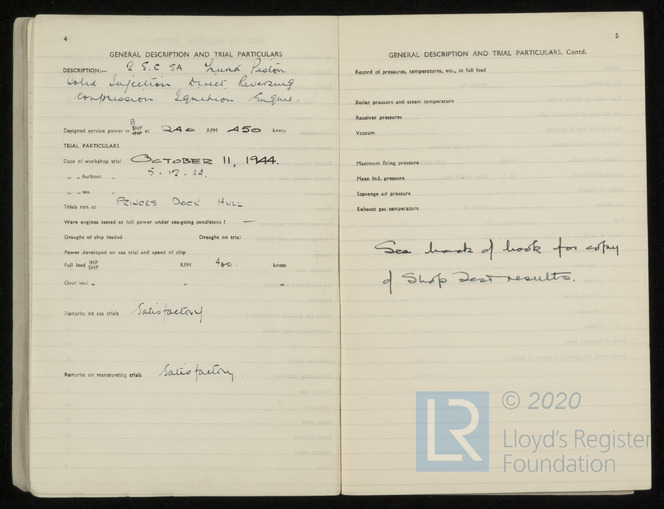 4
GENERAL DESCRIPTION AND TRIAL PARTICULARS
DESCRIPTION:— 2. S.C SA Trunk Piston
Solid Injection Direct Reversing
Compression Ignition Engine.
Designed service power = BHP at 240 RPM 450 knots
TRIAL PARTICULARS
Date of workshop trial OCTOBER 11, 1944.
" " harbour " 5.12.44.
" " sea "
Trials run at PRINCES DOCK HULL
Were engines tested at full power under sea-going conditions? —
Draught of ship loaded Draught on trial
Power developed on sea trial and speed of ship
Full load IHP SHP RPM knots
Over load " " "
Remarks on sea trials Satisfactory
Remarks on manœuvring trials Satisfactory
5
GENERAL DESCRIPTION AND TRIAL PARTICULARS, Contd.
Record of pressures, temperatures, etc., at full load
Boiler pressure and steam temperature
Receiver pressures
Vacuum
Maximum firing pressure
Mean Ind. pressure
Scavenge air pressure
Exhaust gas temperature
See back of book for copy
of Shop Test results.
LR © 2020
Lloyd's Register
Foundation